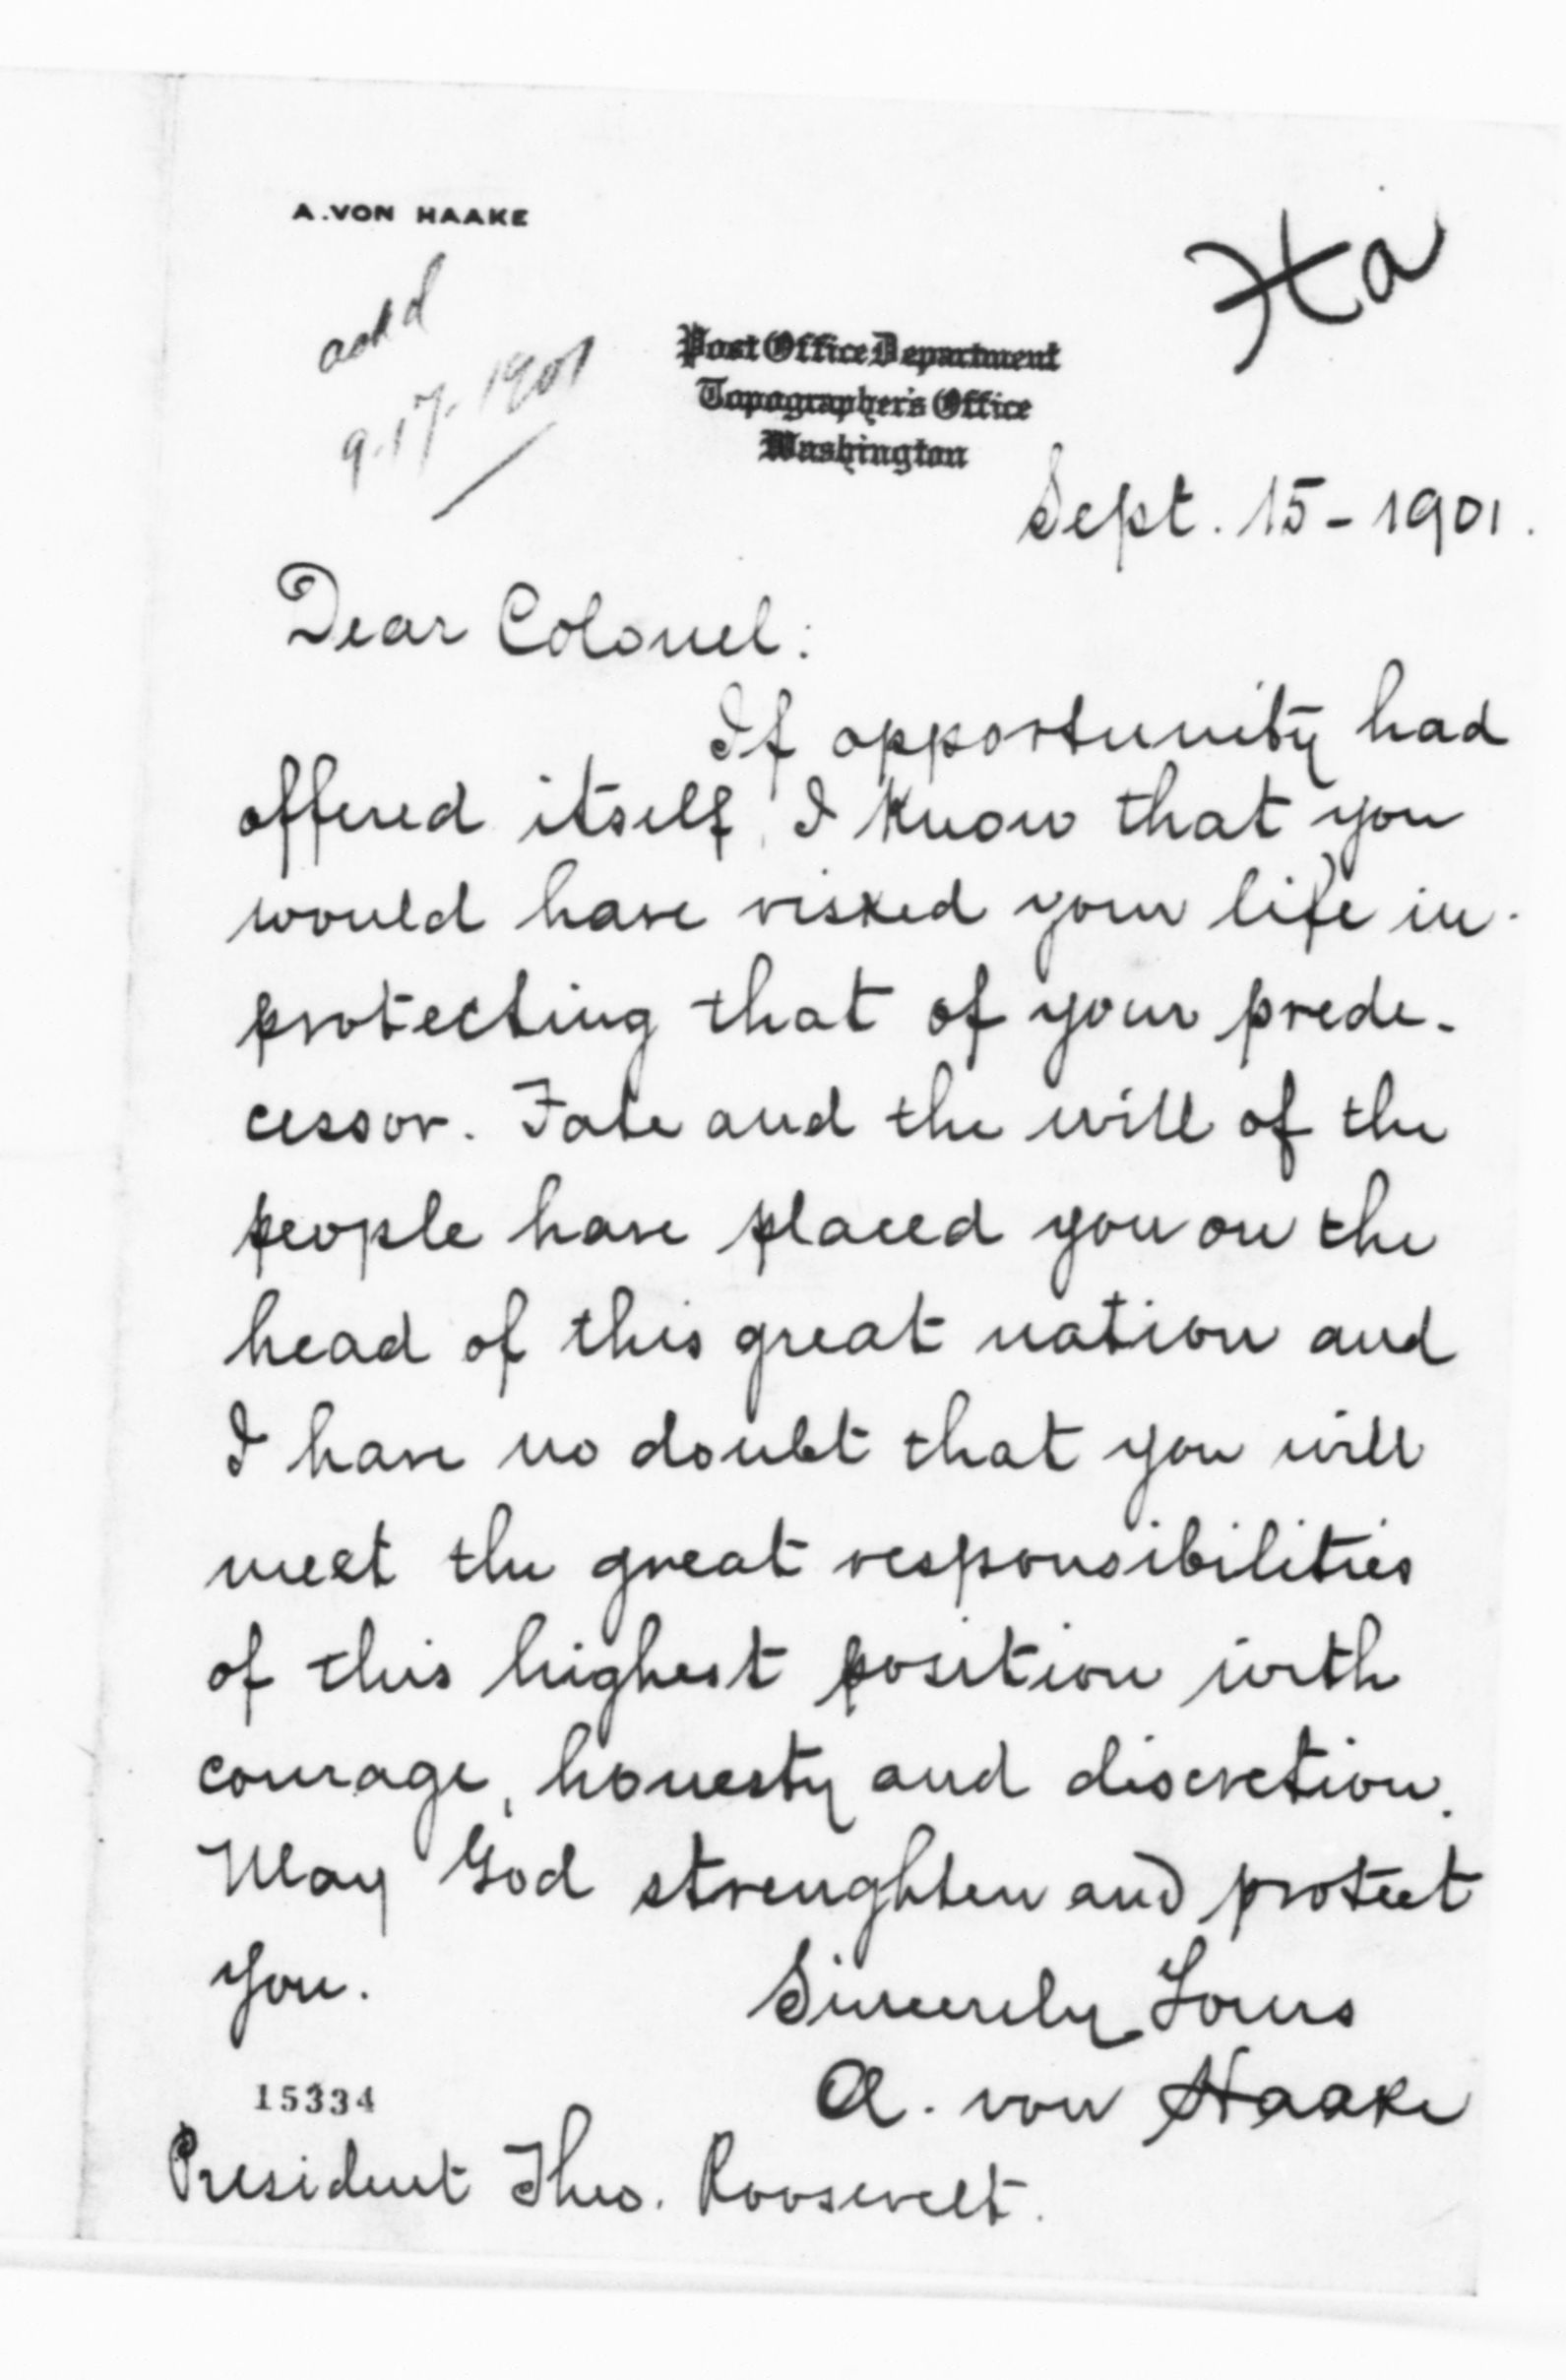 A. VON HAAKE
Ha
ackd
9-17-1901
Post Office Department
Topographer's Office
Washington
Sept. 15 - 1901.
Dear Colonel:
If opportunity had
offered itself, I know that you
would have risked your life in
protecting that of your prede-
cessor. Fate and the will of the
people have placed you on the
head of this great nation and
I have no doubt that you will
meet the great responsibilities
of this highest position with
courage, honesty and discretion.
May God strenghten and protect
you.
Sincerely Yours
A. von Haake
15334
President Theo. Roosevelt.